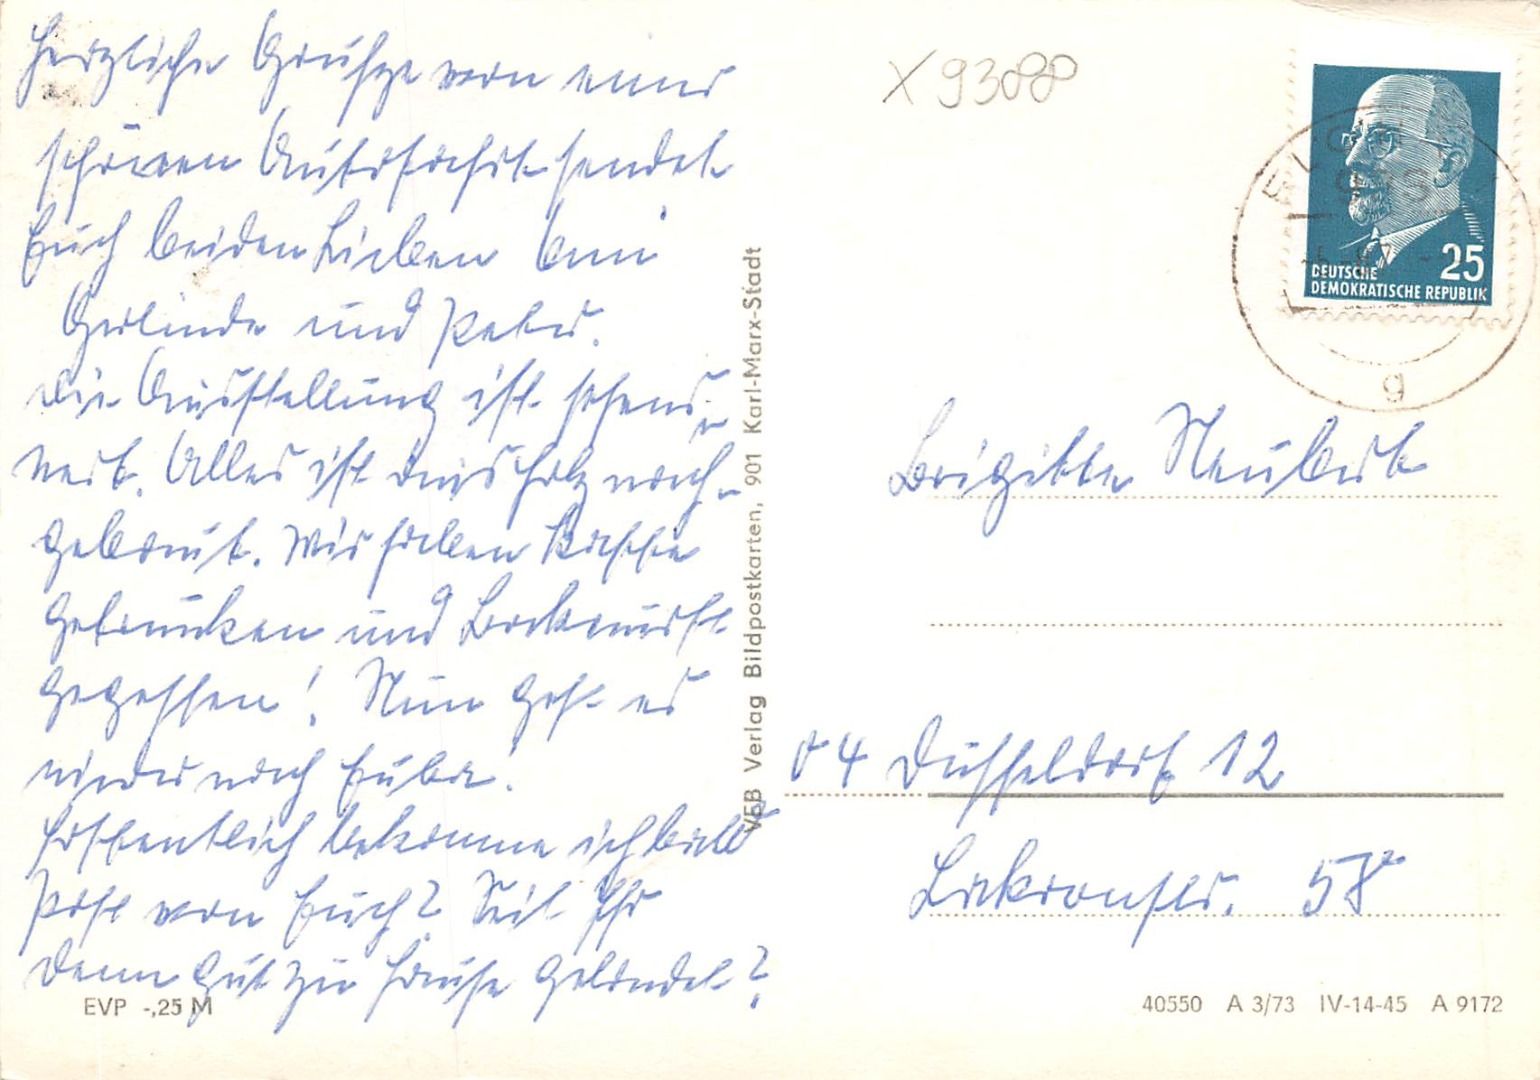 Herzliche Grüße von einer
schönen Autofahrt sendet
Euch beiden Lieben
Gerlinde und Peter.
Die Ausstellung ist sehens-
wert. Alles ist aus Holz nach-
gebaut. Wir haben Kaffee
getrunken und Bockwurst
gegessen! Nun geht es
wieder nach Euba.
Hoffentlich bekomme ich bald
Post von Euch? Seit Ihr
denn gut zu Hause gelandet?
EVP -,25 M
VEB Verlag Bildpostkarten, 901 Karl-Marx-Stadt
X 9388
25
DEUTSCHE
DEMOKRATISCHE REPUBLIK
g
Brigitte Neubert
04 Düsseldorf 12
58
40550 A 3/73 IV-14-45 A 9172